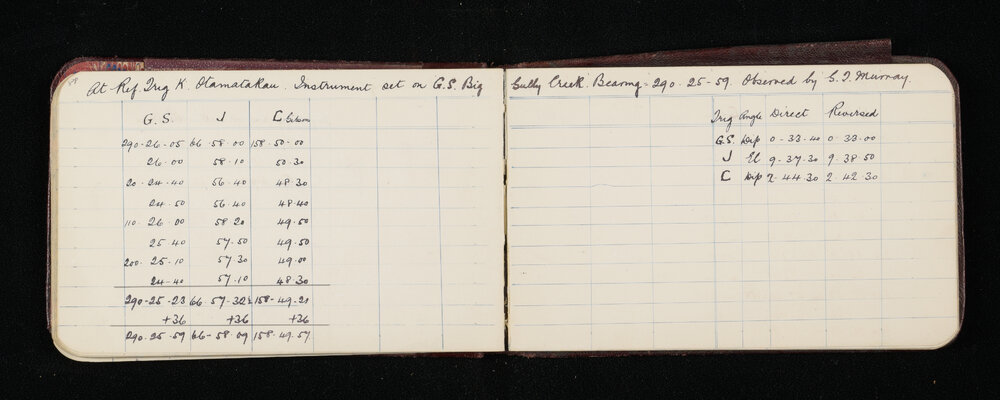 At Ref Trig K. Otamatakau. Instrument set on G.S. Big Gully Creek. Bearing - 290-25-59. Observed by S.J. Murray.
G.S. J C
290-26-05 66-58-00 158-50-00
26-00 58-10 50-30
20-24-40 56-40 48-30
24-50 56-40 48-40
110-26-00 58-20 49-50
25-40 57-50 49-50
200-25-10 57-30 49-00
24-40 57-10 48-30
290-25-23 66-57-32½ 158-49-21
+36 +36 +36
290-25-59 66-58-09 158-49-57
Trig Angle Direct Reversed
G.S. Dip 0-33-40 0-33-00
J El 9-37-30 9-38-50
C Dip 2-44-30 2-42-30